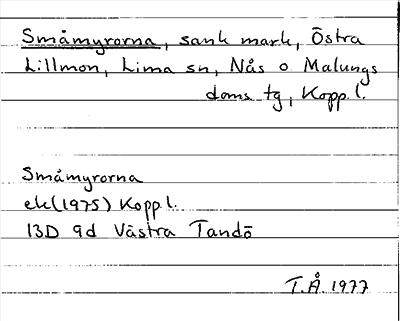 Småmyrorna, sank mark, Östra
Lillmon, Lima sn, Nås o Malungs
doms tg, Kopp.l.
Småmyrorna
ek(1975) Koppl.
13D 9d Västra Tandö
T.Å. 1977